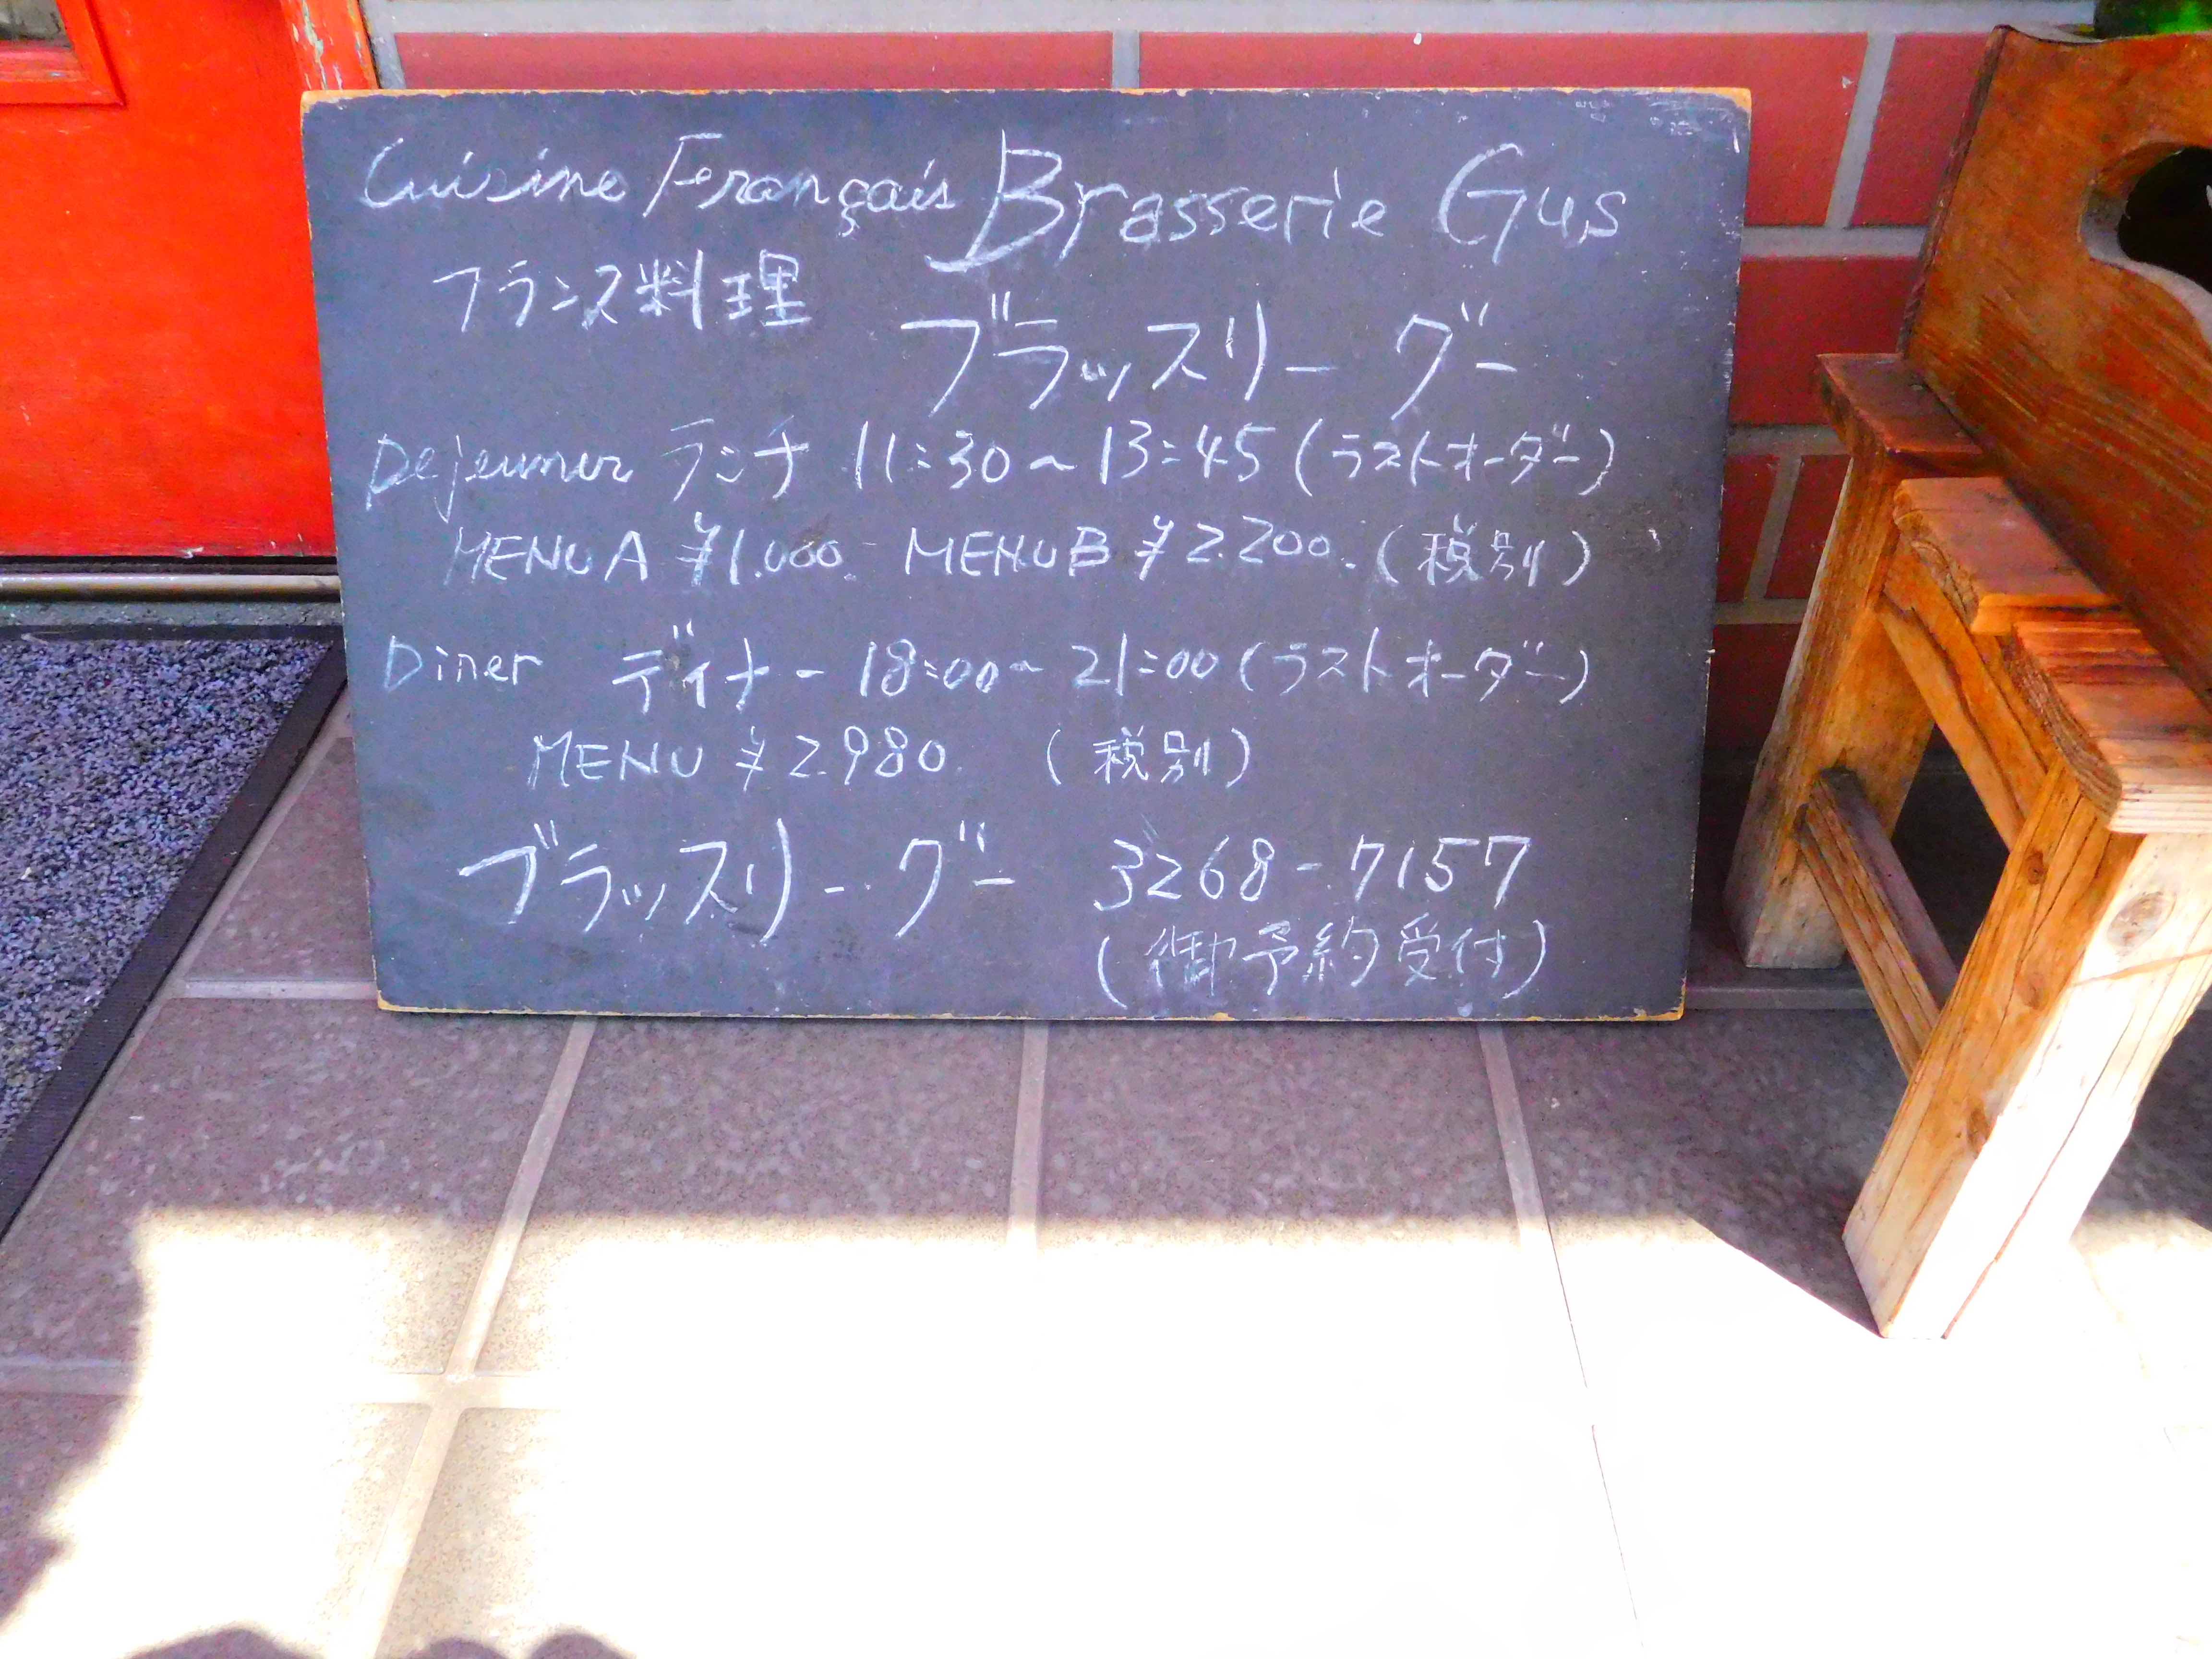 Cuisine Français Brasserie Gus
フランス料理 ブラッスリー グー
Dejeuner ランチ 11:30~13:45(ラストオーダー)
MENU A ¥1.000 MENU B ¥2.200.(税別)
Diner ディナー 18:00~21:00(ラストオーダー)
MENU ¥2.980. (税別)
ブラッスリー グー 3268-7157
(御予約受付)